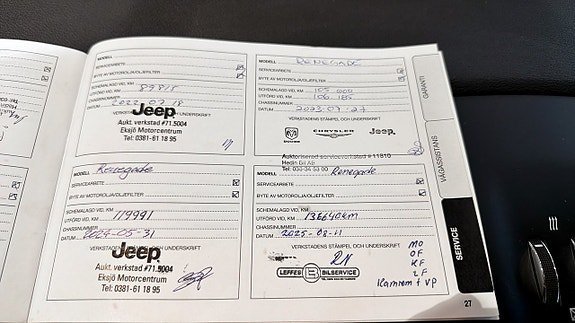 MODELL
SERVICEARBETE
BYTE AV MOTOROLJA/OLJEFILTER
SCHEMALAGD VID, KM
UTFÖRD VID, KM 89818
CHASSINUMMER
DATUM 2022-07-18
VERKSTADENS STÄMPEL OCH UNDERSKRIFT
Jeep
Aukt. verkstad #71.5004
Eksjö Motorcentrum
Tel: 0381-61 18 95
MODELL RENEGADE
SERVICEARBETE
BYTE AV MOTOROLJA/OLJEFILTER
SCHEMALAGD VID, KM 105 000
UTFÖRD VID, KM 106 185
CHASSINUMMER
DATUM 2023-07-27
VERKSTADENS STÄMPEL OCH UNDERSKRIFT
CHRYSLER
Jeep
Auktoriserad serviceverkstad # 11810
Hedin Bil AB
MODELL Renegade
SERVICEARBETE
BYTE AV MOTOROLJA/OLJEFILTER
SCHEMALAGD VID, KM
UTFÖRD VID, KM 119991
CHASSINUMMER
DATUM 2024-05-31
VERKSTADENS STÄMPEL OCH UNDERSKRIFT
Jeep
Aukt. verkstad #71.5004
Eksjö Motorcentrum
Tel: 0381-61 18 95
MODELL Renegade
SERVICEARBETE
BYTE AV MOTOROLJA/OLJEFILTER
SCHEMALAGD VID, KM
UTFÖRD VID, KM 136640km
CHASSINUMMER
DATUM 2025-08-11
VERKSTADENS STÄMPEL OCH UNDERSKRIFT
LEFFES BILSERVICE
MO
OF
KF
LF
Kamrem + VP
27
GARANTI
VÄGASSISTANS
SERVICE